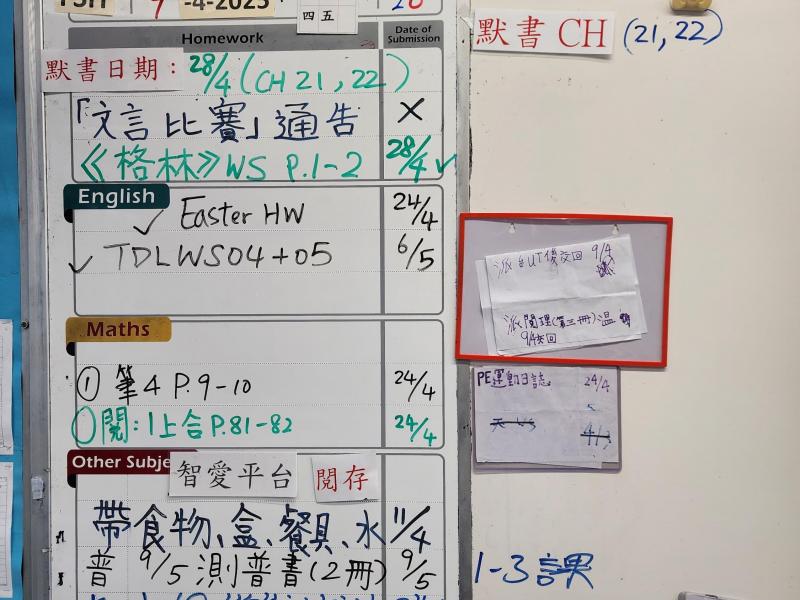 -4-2025
四 五
Homework
Date of Submission
默書日期：28/4 (CH 21, 22)
「文言比賽」通告 X
《格林》WS P.1-2 28/4 ✓
English
✓ Easter HW 24/4
✓ TDLWS04+05 6/5
Maths
① 筆4 P.9-10 24/4
閱：1上合P.81-82 24/4
Other Subje
智愛平台 閱存
帶食物、盒、餐具、水 11/4
普 9/5 測普書(2冊) 9/5
默書 CH (21, 22)
9/4
9/4交回
PE運動日誌 24/4
1-3課